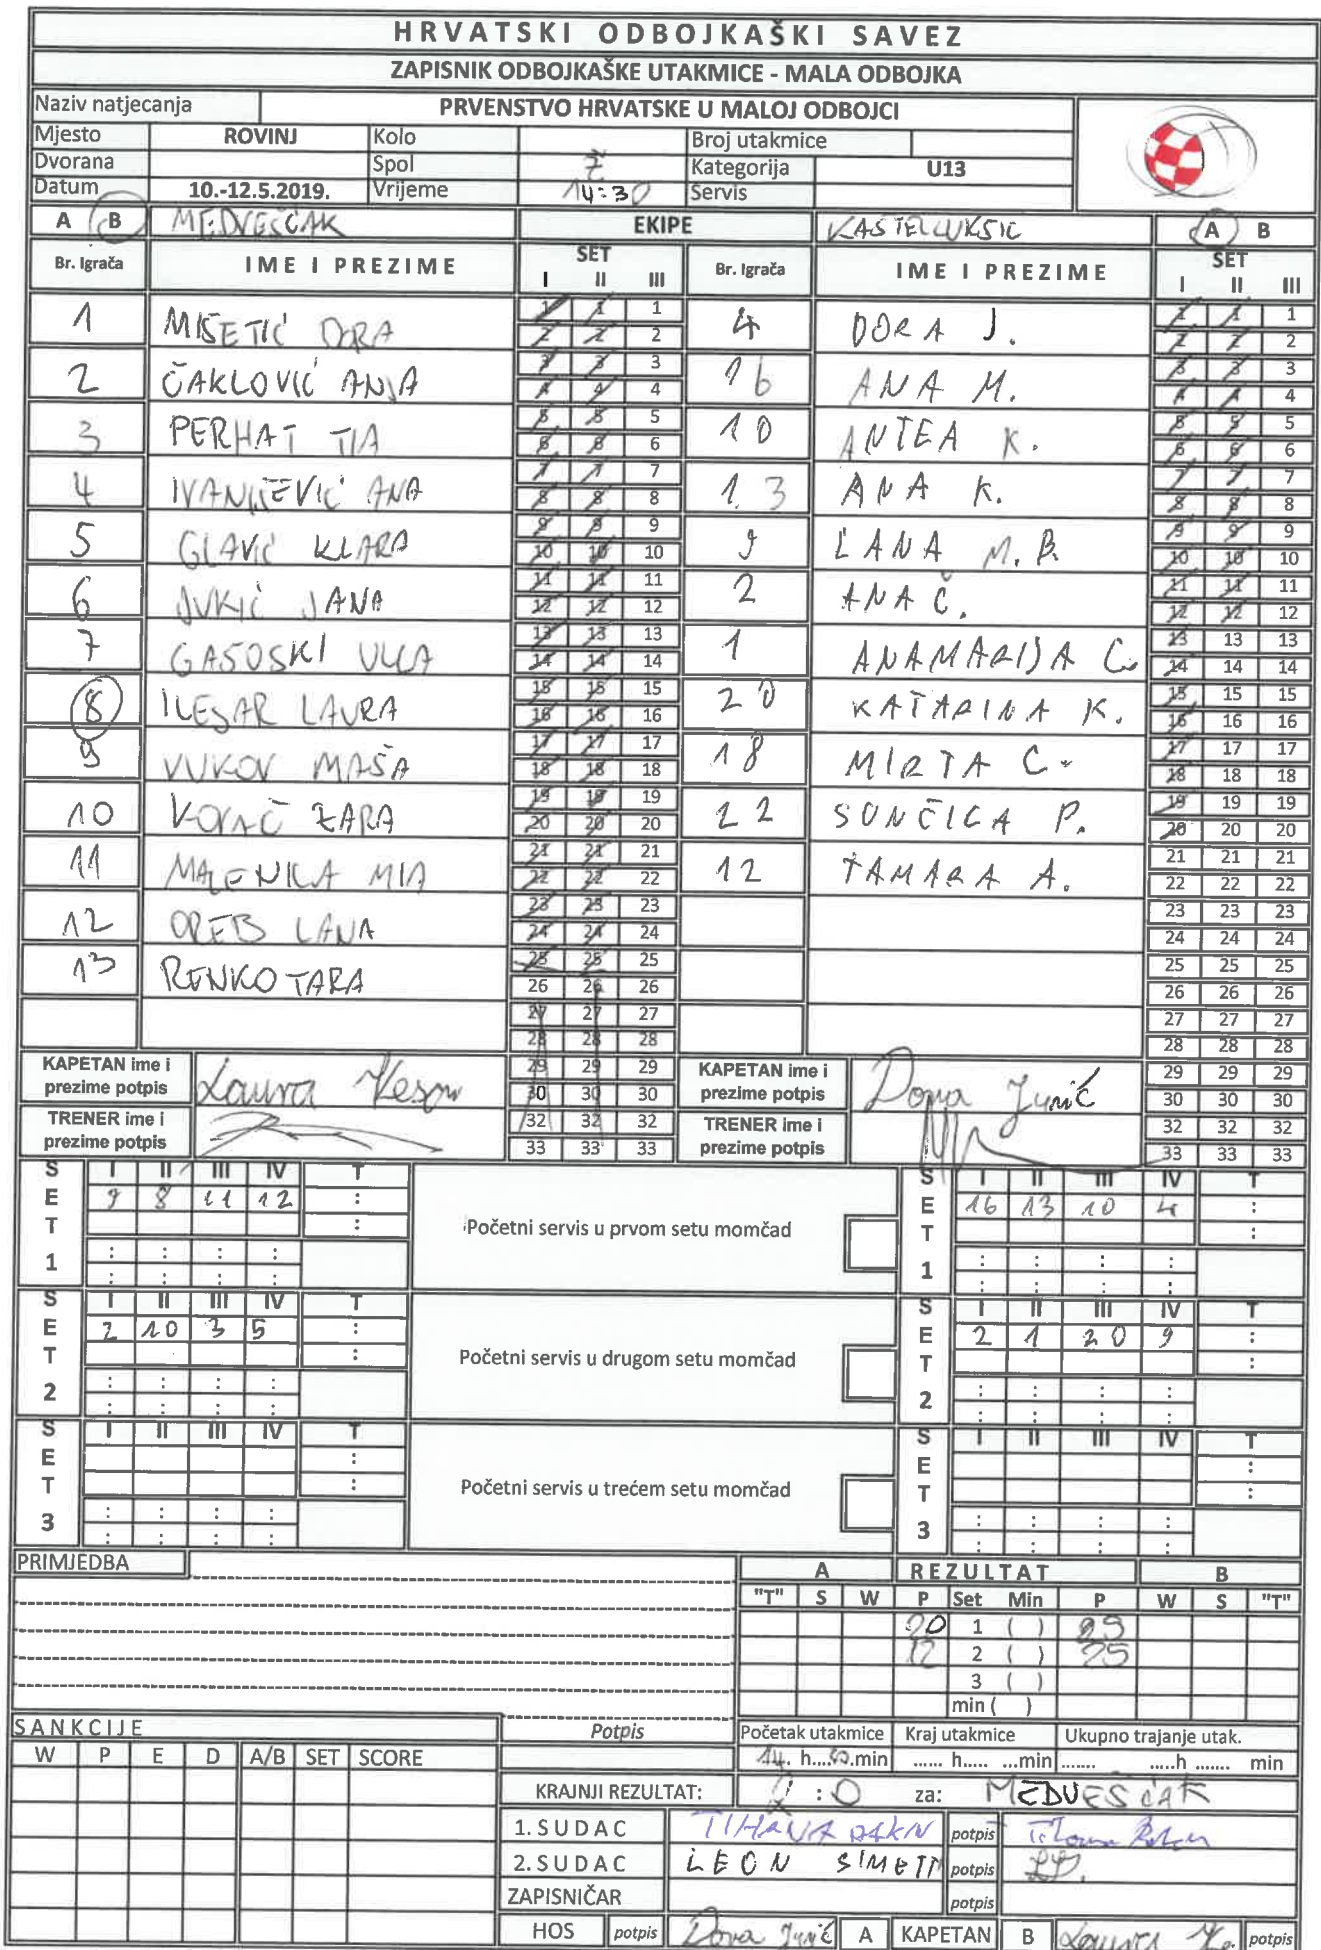 HRVATSKI ODBOJKAŠKI SAVEZ
ZAPISNIK ODBOJKAŠKE UTAKMICE - MALA ODBOJKA
Naziv natjecanja PRVENSTVO HRVATSKE U MALOJ ODBOJCI
Mjesto ROVINJ Kolo Broj utakmice
Dvorana Spol Ž Kategorija U13
Datum 10.-12.5.2019. Vrijeme 14:30 Servis
A B MEDVEŠČAK EKIPE KAŠTELLUKSIC A B
Br. Igrača IME I PREZIME SET I II III Br. Igrača IME I PREZIME SET I II III
1 MISETIĆ DORA 1 1 1 4 DORA J. 1 1 1
2 2 2 2 2 2
2 ČAKLOVIĆ ANJA 3 3 3 16 ANA M. 3 3 3
4 4 4 4 4 4
3 PERHAT TIA 5 5 5 10 ANTEA K. 5 5 5
6 6 6 6 6 6
4 IVANIŠEVIĆ ANA 7 7 7 13 ANA K. 7 7 7
8 8 8 8 8 8
5 GLAVIĆ KLARA 9 9 9 9 LANA M. B. 9 9 9
10 10 10 10 10 10
6 JUKIĆ JANA 11 11 11 2 ANA Č. 11 11 11
12 12 12 12 12 12
7 GASOSKI 13 13 13 1 ANAMARIJA C. 13 13 13
14 14 14 14 14 14
8 LAURA 15 15 15 20 KATARINA K. 15 15 15
16 16 16 16 16 16
9 VUKOV MAŠA 17 17 17 18 MIRTA C. 17 17 17
18 18 18 18 18 18
10 KOVAČ ZARA 19 19 19 22 SUNČICA P. 19 19 19
20 20 20 20 20 20
11 MALENICA MIA 21 21 21 12 TAMARA A. 21 21 21
22 22 22 22 22 22
12 OREB LANA 23 23 23 23 23 23
24 24 24 24 24 24
13 RENKO TARA 25 25 25 25 25 25
26 26 26 26 26 26
27 27 27 27 27 27
28 28 28 28 28 28
KAPETAN ime i prezime potpis Laura 29 29 29 KAPETAN ime i prezime potpis Dora Jurić 29 29 29
30 30 30 30 30 30
TRENER ime i prezime potpis 32 32 32 TRENER ime i prezime potpis 32 32 32
33 33 33 33 33 33
SET 1 I II III IV T Početni servis u prvom setu momčad SET 1 I II III IV T
9 8 11 12 : 16 13 10 4 :
:
: : : : : : : :
: : : : : : : :
SET 2 I II III IV T Početni servis u drugom setu momčad SET 2 I II III IV T
2 10 3 5 : 2 1 20 9 :
:
: : : : : : : :
: : : : : : : :
SET 3 I II III IV T Početni servis u trećem setu momčad SET 3 I II III IV T
: :
: :
: : : : : : : :
: : : : : : : :
PRIMJEDBA A REZULTAT B
"T" S W P Set Min P W S "T"
20 1 ( ) 25
12 2 ( ) 25
3 ( )
min ( )
SANKCIJE Potpis Početak utakmice Kraj utakmice Ukupno trajanje utak.
W P E D A/B SET SCORE 14. h...30.min ...... h..... ...min ....... .....h ....... min
KRAJNJI REZULTAT: 2 : 0 za: MEDVEŠČAK
1. SUDAC TIHANA potpis
2. SUDAC LEON potpis
ZAPISNIČAR potpis
HOS potpis Dora Jurić A KAPETAN B Laura potpis